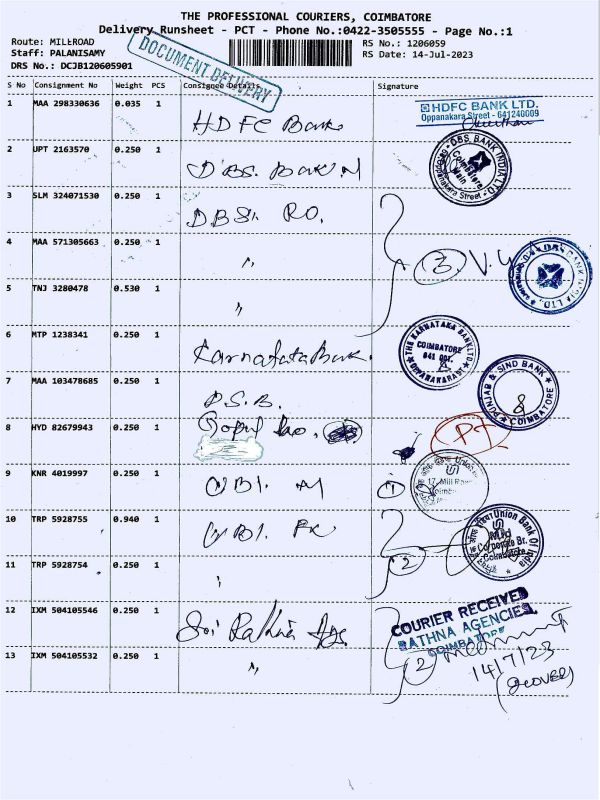 THE PROFESSIONAL COURIERS, COIMBATORE
Delivery Runsheet - PCT - Phone No.:0422-3505555 - Page No.:1
Route: MILLROAD
RS No.: 1206059
Staff: PALANISAMY
RS Date: 14-Jul-2023
DRS No.: DCJB120605901
DOCUMENT DELIVERY
S No Consignment No Weight PCS Consignee Details Signature
1 MAA 298330636 0.035 1 HDFC Bank
HDFC BANK LTD.
Oppanakara Street - 641240009
2 UPT 2163570 0.250 1 DBS. Bank M
DBS BANK INDIA LTD
Coimbatore
Main
Oppanakara Street
3 SLM 324071530 0.250 1 DBS. RO.
4 MAA 571305663 0.250 1 "
3 V.
DBS BANK INDIA LTD.
5 TNJ 3280478 0.530 1 "
6 MTP 1238341 0.250 1 Karnataka Bank.
THE KARNATAKA BANK LTD
COIMBATORE
641 001.
OPPANAKARA ST
7 MAA 103478685 0.250 1 P.S.B.
PUNJAB & SIND BANK
COIMBATORE
8 HYD 82679943 0.250 1 Gopal
9 KNR 4019997 0.250 1 UBI. M
1
17, Mill Road
10 TRP 5928755 0.940 1 UBI.
Union Bank Of India
Mid
Corporate Br.
Coimbatore
11 TRP 5928754 0.250 1 "
2
12 IXM 504105546 0.250 1 Sri Rathna Ags
COURIER RECEIVED
RATHNA AGENCIES,
COIMBATORE
13 IXM 504105532 0.250 1 "
2
14/7/23